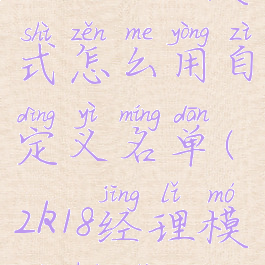 shì zěn me yòng zì
式怎么用自
dìng yì míng dān
定义名单(
jīng lǐ mó
2k18经理模